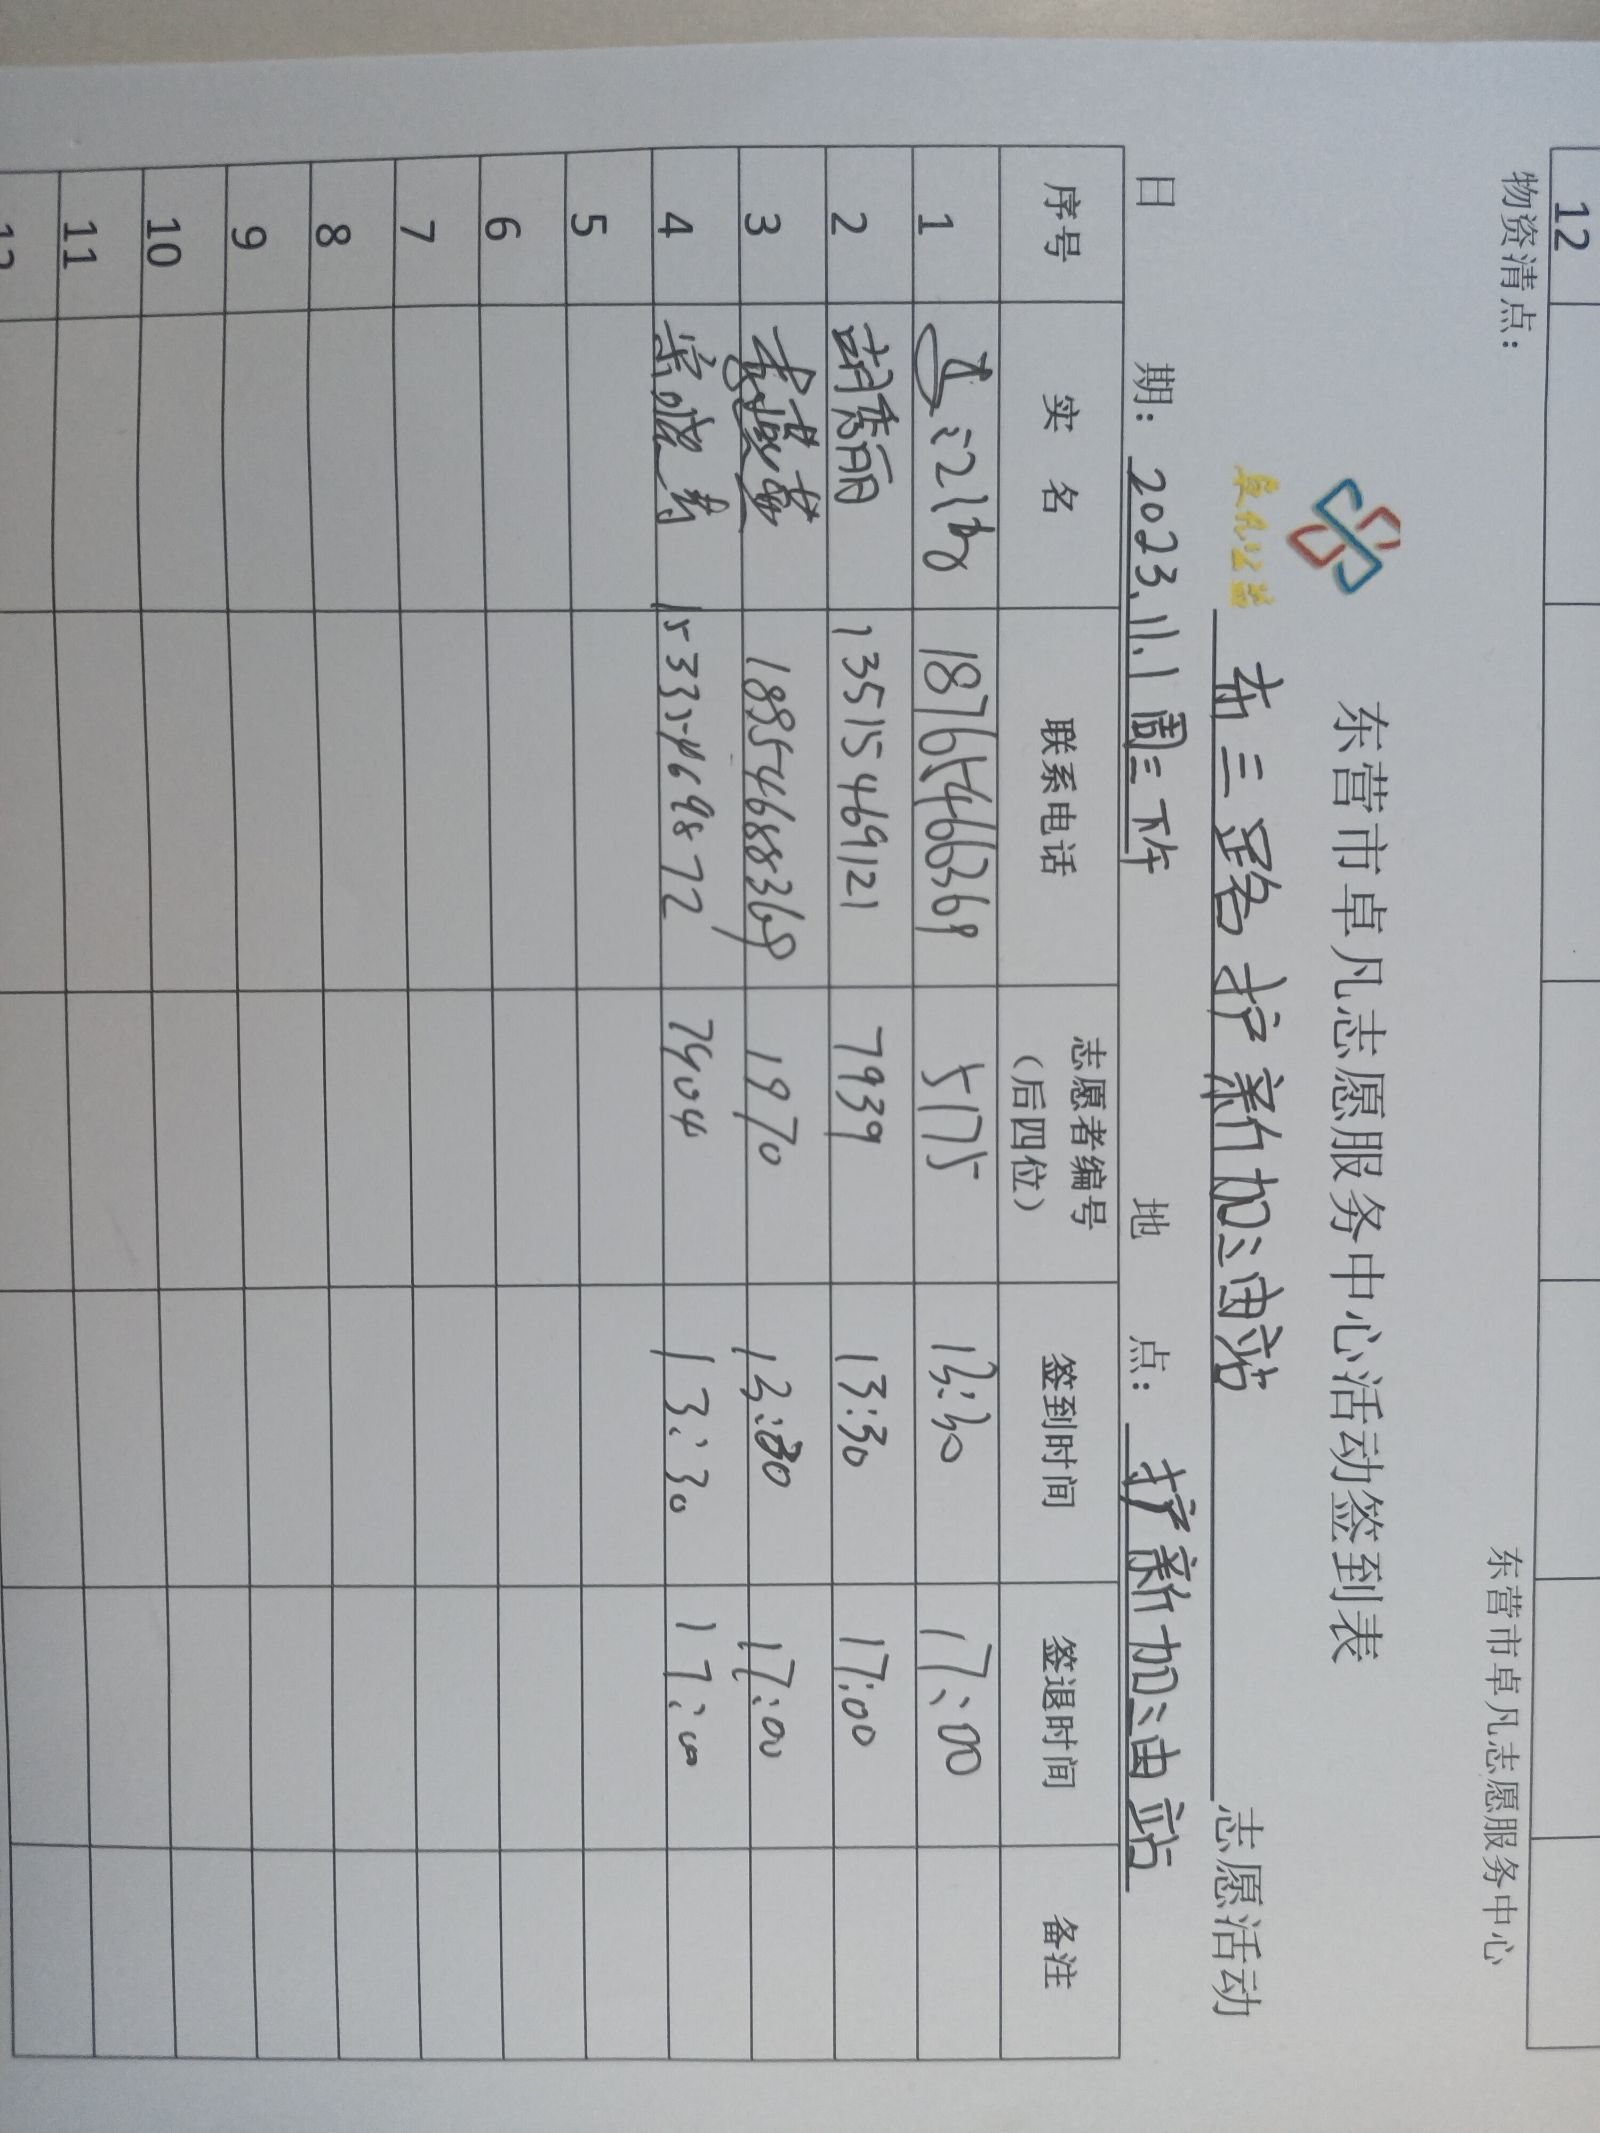 12
物资清点：
东营市卓凡志愿服务中心
东营市卓凡志愿服务中心活动签到表
卓凡公益
东三路护新加油站 志愿活动
日 期：2023.11.1周三下午 地 点：护新加油站
序号 实 名 联系电话 志愿者编号（后四位） 签到时间 签退时间 备注
1 18765466369 5175 13:30 17:00
2 胡秀丽 13515469121 7939 13:30 17:00
3 18954688369 1970 13:30 17:00
4 7904 13:30 17:00
5
6
7
8
9
10
11
12